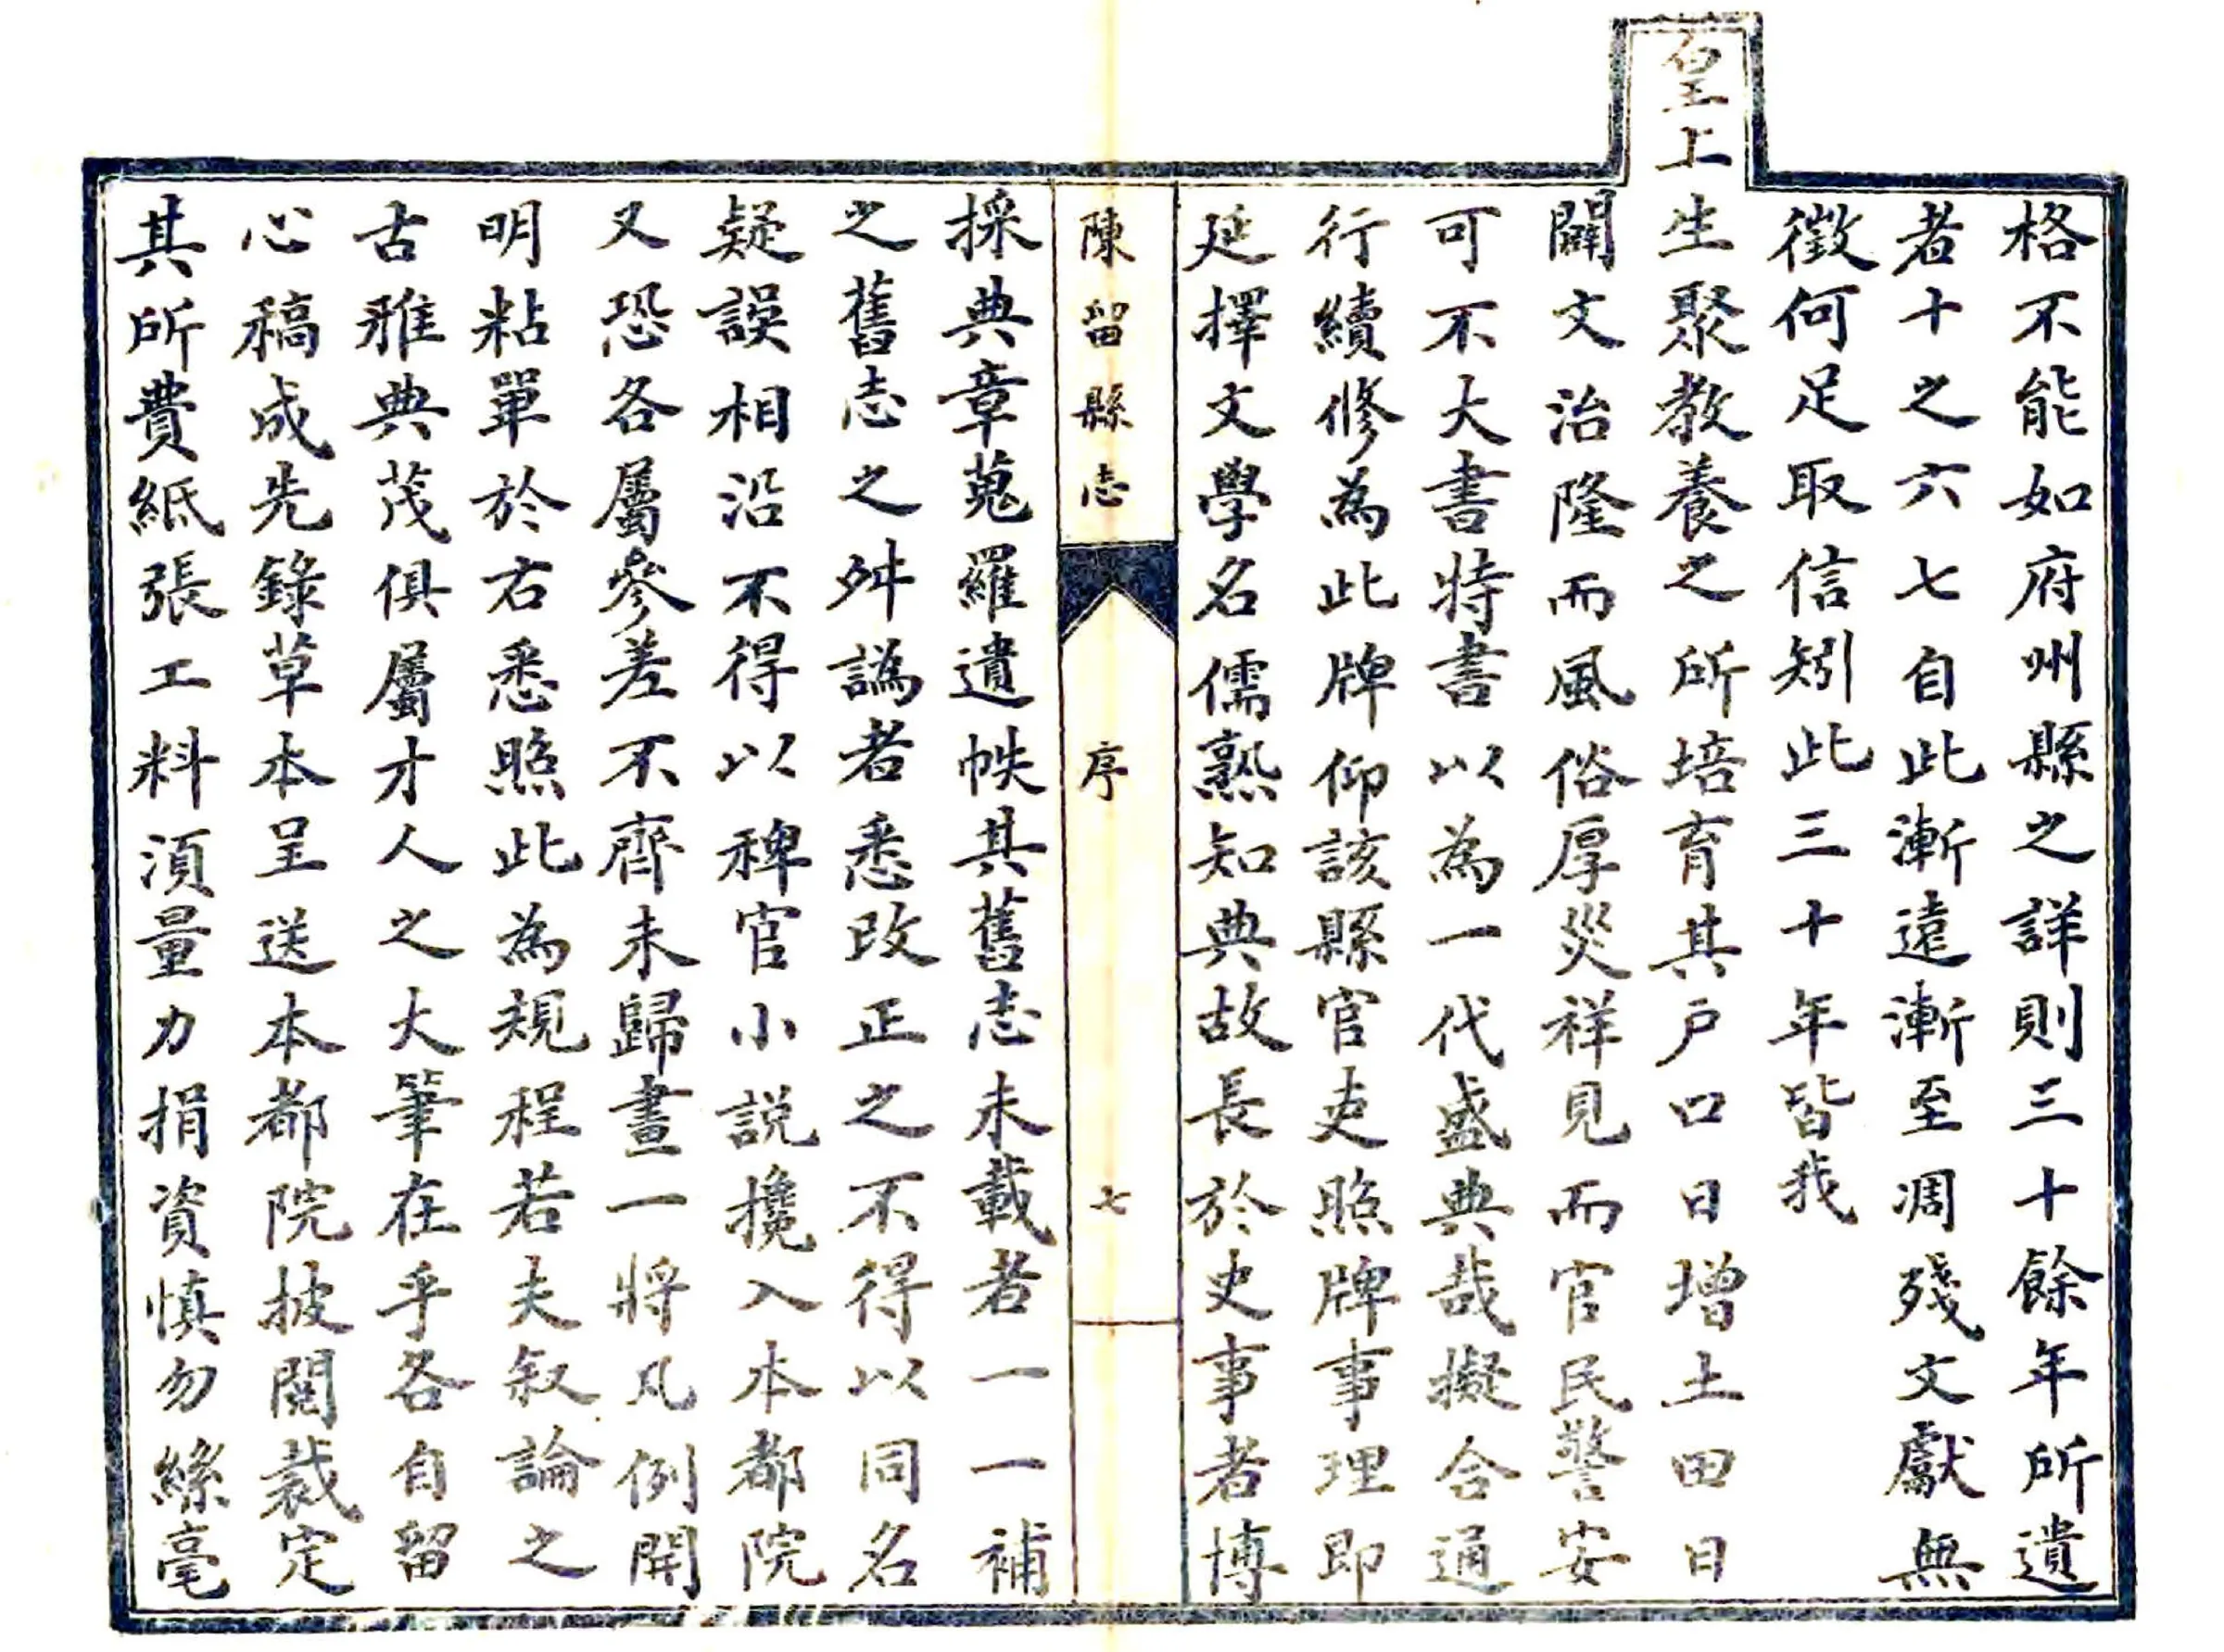 格不能如府州縣之詳則三十餘年所遺
者十之六七自此漸遠漸至凋殘文獻無
徵何足取信矧此三十年皆我
皇上生聚教養之所培育其戶口日增土田日
闢文治隆而風俗厚災祥見而官民警安
可不大書特書以為一代盛典哉擬合通
行續修為此牌仰該縣官吏照牌事理即
延擇文學名儒熟知典故長於史事者博
陳留縣志
序
七
採典章蒐羅遺帙其舊志未載者一一補
之舊志之舛譌者悉改正之不得以同名
疑誤相沿不得以稗官小説攙入本都院
又恐各屬參差不齊未歸畫一將凡例開
明粘單於右悉照此為規程若夫叙論之
古雅典茂俱屬才人之大筆在乎各自留
心稿成先錄草本呈送本都院披閱裁定
其所費紙張工料須量力捐資慎勿絲毫